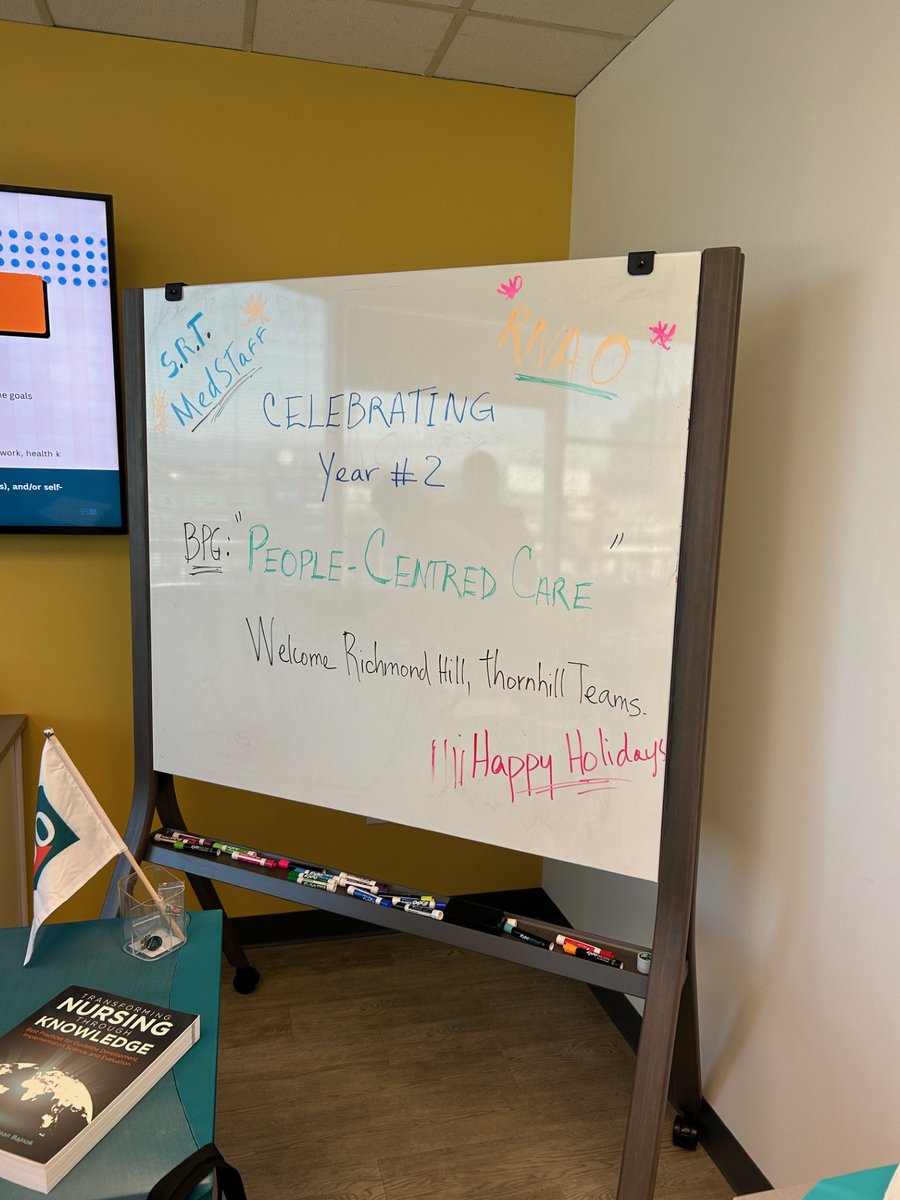 S.R.T.
MedStaff
RNAO
CELEBRATING
Year #2
BPG: "PEOPLE-CENTRED CARE"
Welcome Richmond Hill, Thornhill Teams.
Happy Holidays
e goals
work, health k
s), and/or self-
TRANSFORMING
NURSING
THROUGH
KNOWLEDGE
Best Practices for Guideline Development,
Implementation Science, and Evaluation
ean Bajnok